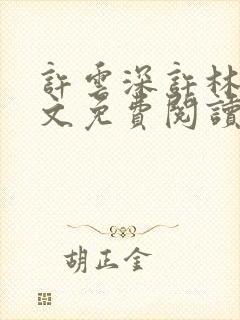 許雲深許林
文免費閱讀
胡正金